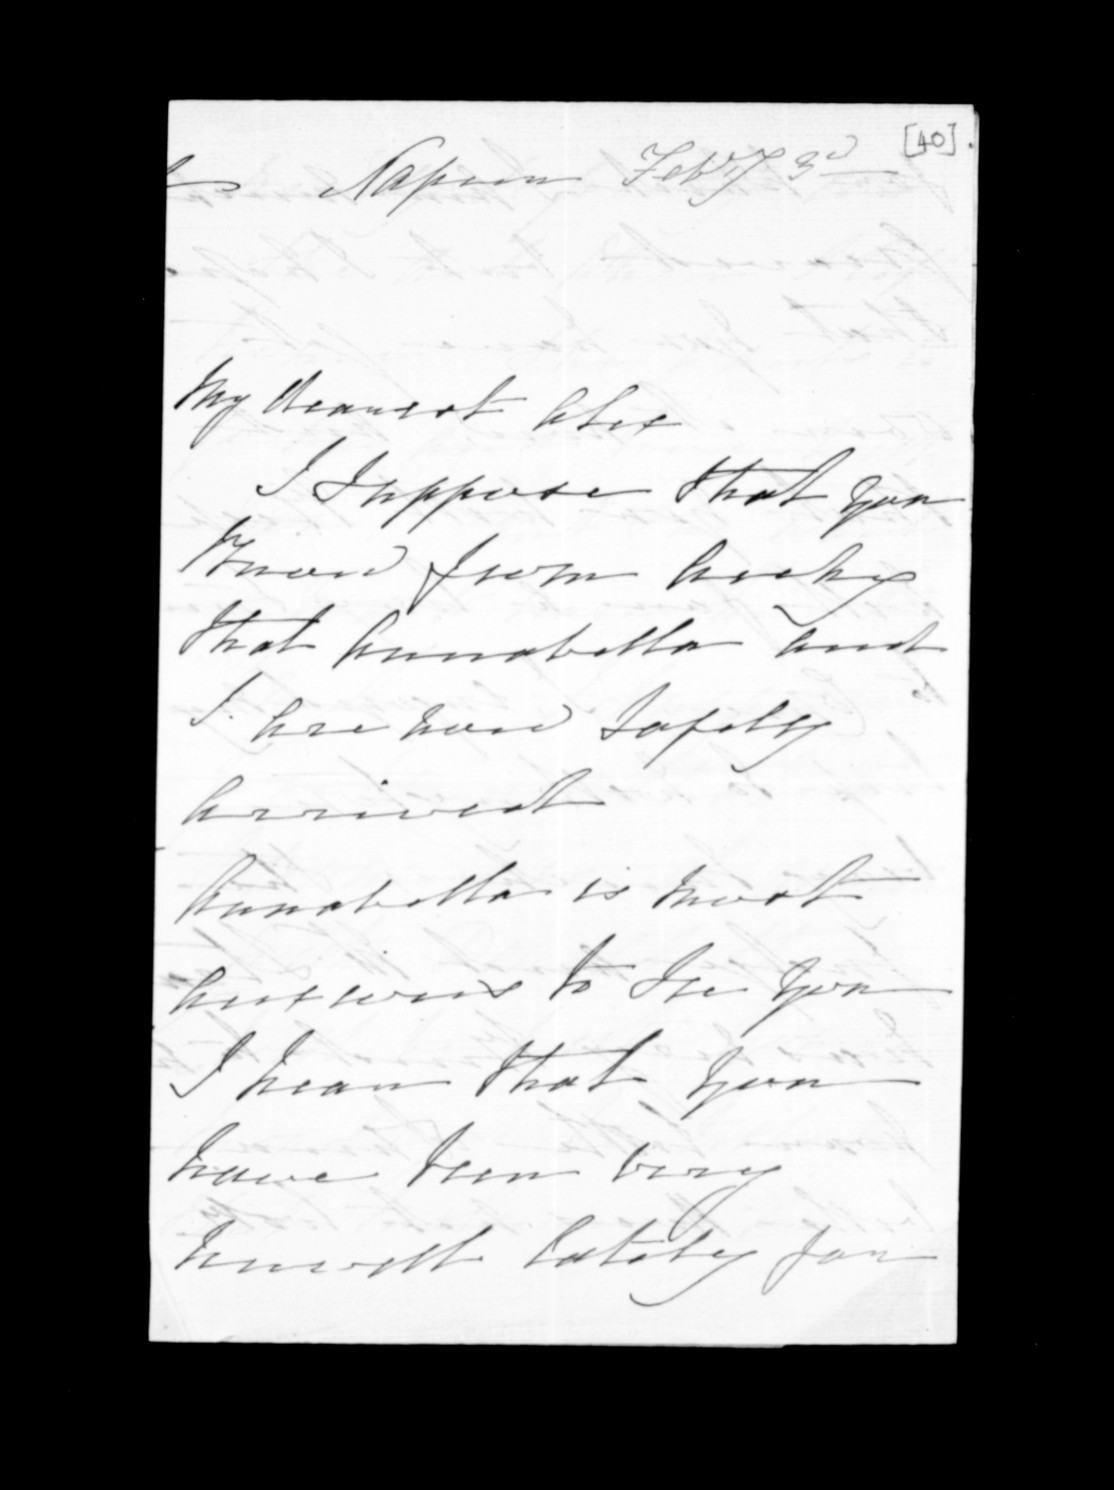 [40].
Napier Feby 3d
My dearest Alex
I Suppose that you
Know from Archy
that Annabella and
I. are now Safely
arrived
Annabella is most
anxious to See you
I hear that you
have been very
unwell Lately for